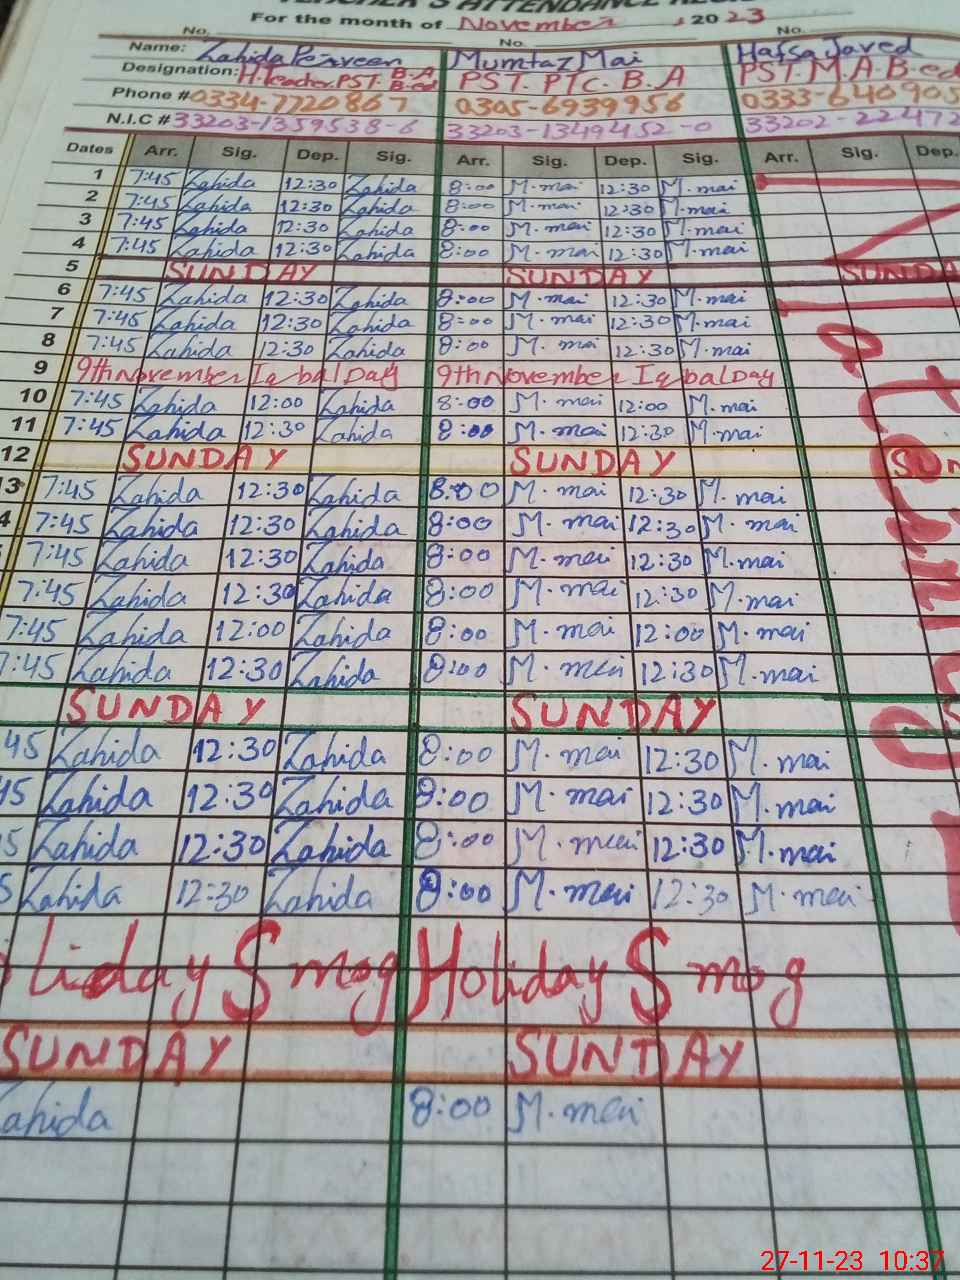 TEACHER'S ATTENDANCE REGIS
For the month of November, 2023
No. No. No.
Name: Zahida Perveen Mumtaz Mai Hafsa Javed
Designation: H.Teacher.PST. B.A B.ed PST. PTC. B.A PST.M.A.B.ed
Phone # 0334-7720867 0305-6939956 0333-640905
N.I.C # 33203-1359538-6 33203-1349452-0 33202-22472
Dates Arr. Sig. Dep. Sig. Arr. Sig. Dep. Sig. Arr. Sig. Dep.
1 7:45 Zahida 12:30 Zahida 8:00 M.mai 12:30 M.mai
2 7:45 Zahida 12:30 Zahida 8:00 M.mai 12:30 M.mai
3 7:45 Zahida 12:30 Zahida 8:00 M.mai 12:30 M.mai
4 7:45 Zahida 12:30 Zahida 8:00 M.mai 12:30 M.mai
5 SUNDAY SUNDAY SUNDA
6 7:45 Zahida 12:30 Zahida 8:00 M.mai 12:30 M.mai
7 7:45 Zahida 12:30 Zahida 8:00 M.mai 12:30 M.mai
8 7:45 Zahida 12:30 Zahida 8:00 M.mai 12:30 M.mai
9 9th November Iqbal Day 9th November Iqbal Day
10 7:45 Zahida 12:00 Zahida 8:00 M.mai 12:00 M.mai
11 7:45 Zahida 12:30 Zahida 8:00 M.mai 12:30 M.mai
12 SUNDAY SUNDAY SUN
13 7:45 Zahida 12:30 Zahida 8:00 M.mai 12:30 M.mai
4 7:45 Zahida 12:30 Zahida 8:00 M.mai 12:30 M.mai
7:45 Zahida 12:30 Zahida 8:00 M.mai 12:30 M.mai
7:45 Zahida 12:30 Zahida 8:00 M.mai 12:30 M.mai
7:45 Zahida 12:00 Zahida 8:00 M.mai 12:00 M.mai
7:45 Zahida 12:30 Zahida 8:00 M.mai 12:30 M.mai
SUNDAY SUNDAY
45 Zahida 12:30 Zahida 8:00 M.mai 12:30 M.mai
45 Zahida 12:30 Zahida 8:00 M.mai 12:30 M.mai
5 Zahida 12:30 Zahida 8:00 M.mai 12:30 M.mai
5 Zahida 12:30 Zahida 8:00 M.mai 12:30 M.mai
oliday Smog Holiday Smog
SUNDAY SUNDAY
ahida 8:00 M.mai
27-11-23 10:37